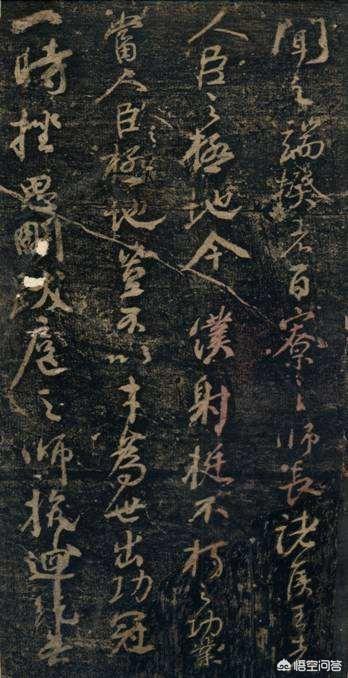 聞之端揆者百寮之師長諸侯王者
人臣之極地今僕射挺不朽之功業
當人臣之極地豈不以才為世出功冠
一時挫思明跋扈之師抗迴紇無
悟空问答